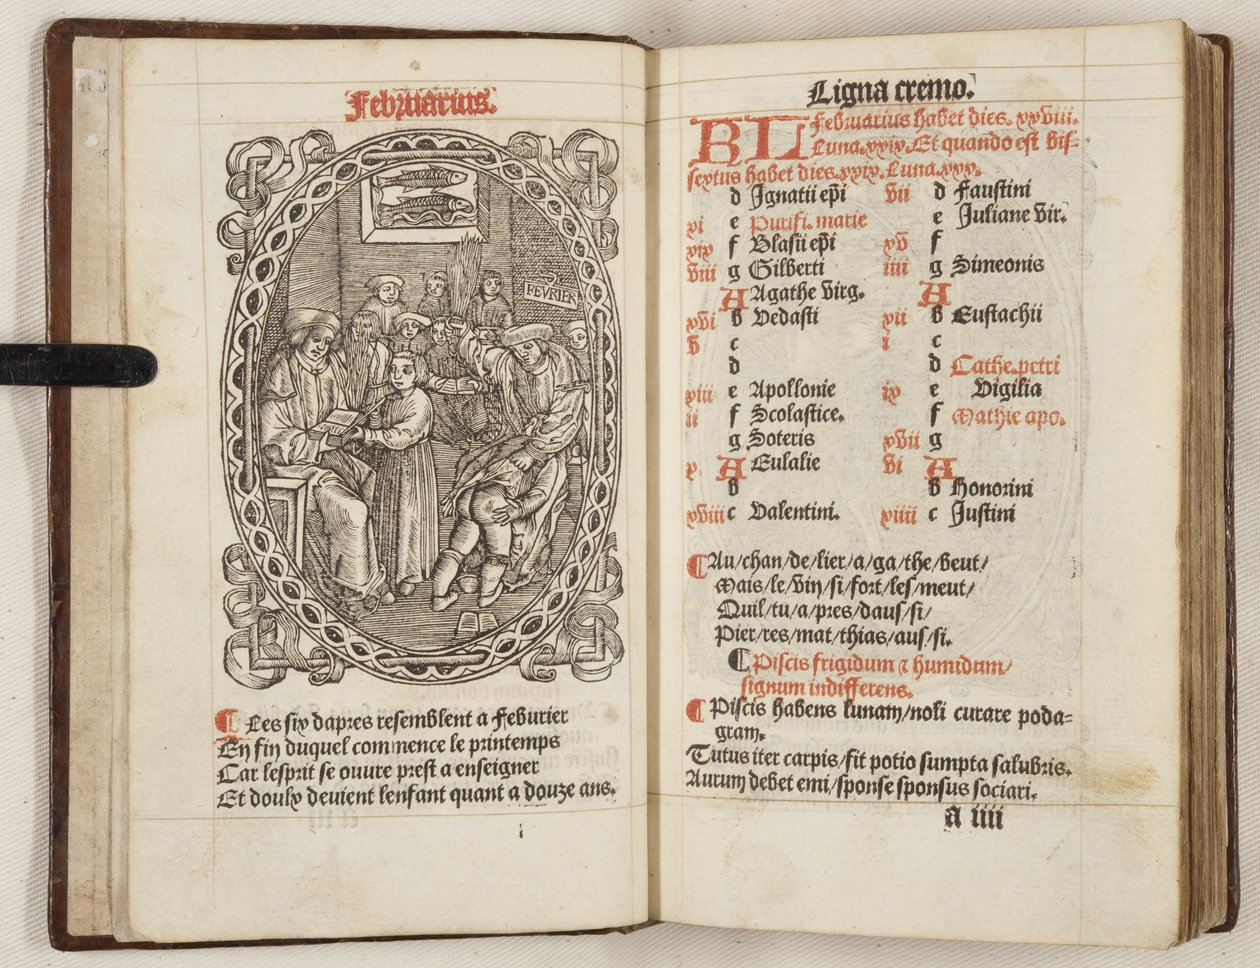 Februarius.
FEVRIER
Les six dapres resemblent a Feburier
En fin duquel commence le printemps
Car lesprit se ouvre prest a enseigner
Et doulx devient lenfant quant a douze ans.
Ligna cremo.
KL Februarius habet dies. xxviii.
Luna. xxix. Et quando est bis-
sextus habet dies. xxix. Luna. xxx.
d Ignatii ep̄i
xi e Purifi. marie
xix f Blasii ep̄i
viii g Gilberti
A Agathe virg.
xvi b Vedasti
v c
d
xiii e Apollonie
ii f Scolastice.
g Soteris
x A Eulalie
b
xviii c Valentini.
vii d Faustini
e Juliane vir.
xv f
iiii g Simeonis
A
xii b Eustachii
i c
d Cathe. petri
ix e Vigilia
f Mathie apo.
xvii g
vi A
b Honorini
xiiii c Justini
Au/chan/de/lier/a/ga/the/beut/
Mais/le/vin/si/fort/les/meut/
Quil/tu/a/pres/daus/si/
Pier/res/mat/thias/aus/si.
Piscis frigidum ⁊ humidum/
signum indifferens.
Piscis habens lunam/noli curare poda-
gram.
Tutus iter carpis/fit potio sumpta salubris.
Aurum debet emi/sponse sponsus sociari.
a iiii